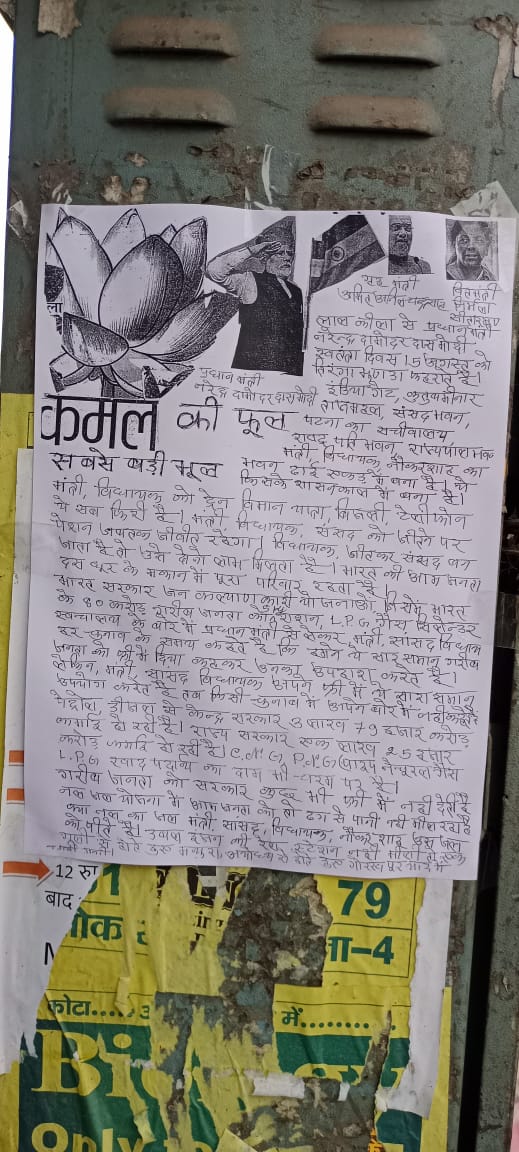 ला
गृह मंत्री
वितमंत्री
निर्मला
सीतारमण
लाल कीला से प्रधानमंत्री
नरेन्द्र दामोदर दास मोदी
स्वतंत्रता दिवस 15 अगस्त को
तिरंगा झण्डा फहराते हैं।
प्रधान मंत्री
नरेन्द्र दामोदर दास मोदी
इंडिया गेट, कुतुबमीनार
ताजमहल, संसद भवन,
कमल की फूल
पटना का सचीवालय,
भवन, राज्यपाल भवन
सबसे बड़ी भूल
मंत्री, विधायक, नौकरशाह का
भवन ढाई रूकड़ में बना है। ये
किसके शासनकाल में बना है।
मंत्री, विधायक को ट्रेन विमान यात्रा, बिजली, टेलीफोन
ये सब फ्री है। मंत्री, विधायक, संसद को जीतने पर
पेंशन जबतक जीवीत रहेगा। विधायक, जीतकर संसद बन
जाता है तो उसे दोनो लाभ मिलता है। भारत की आम जनता
दस धूर के मकान में पूरा परिवार रहता है।
भारत सरकार जन कल्याण कारी योजनाओं जिसमें भारत
के 80 करोड़ गरीब जनता को राशन, L.P.G गैस सिलेन्डर
के बारे में प्रधान मंत्री से लेकर, मंत्री, सांसद विधायक
हर चुनाव के समय कहते है कि इतने ये सारे समान गरीब
जनता को फ्री में दिया कहकर उनका उपहास करते है।
लेकिन, मंत्री, सांसद विधायक अपने फ्री में ये सारा समान
उपयोग करते हैं तब किसी चुनाव में अपने बारे में नही कहते
पेट्रोल, डीजल से केन्द्र सरकार 3 लाख 79 हजार करोड़
कमाई हो रही है। राज्य सरकार एक लाख 25 हजार
करोड़ कमाई हो रही है। C.N.G, P.N.G नेचुरल गैस
L.P.G खाद्य पदार्थ का दाम भी चरम पर है।
गरीब जनता को सरकार कुछ भी फ्री में नही देती है
नल जल योजना में आम जनता को तो ढंग से पानी नही मील रहा है
क्या नल का जल मंत्री, सांसद, विधायक, नौकर शाह इस जल
को पीते है।
12 रु
79
बाद
ोक
ा-4
कोटा.....3
में.........
Bi
Only